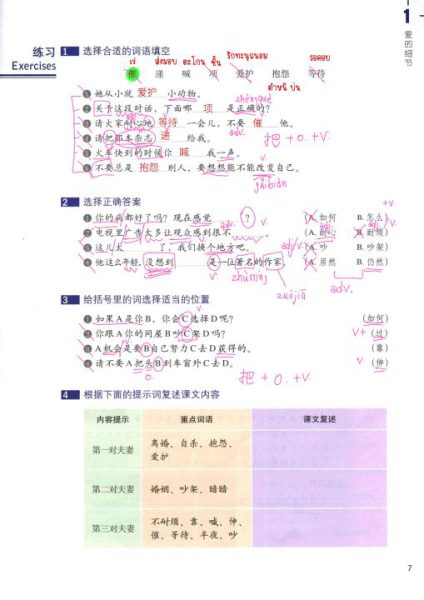 1
爱的细节
练习
Exercises
1 选择合适的词语填空
เร่ ส่งมอบ ตะโกน ชิ้น รักทะนุถนอม รอคอย
催 递 喊 项 爱护 抱怨 等待
ตำหนิ บ่น
❶ 她从小就 爱护 小动物。
zhèngquè
❷ 关于这段对话，下面哪 项 是正确的？
❸ 请大家耐心地 等待 一会儿，不要 催 他。
❹ 请把那本杂志 递 给我。 adv. 把 + O. + V.
❺ 火车快到的时候你 喊 我一声。
❻ 不要总是 抱怨 别人，要想想能不能改变自己。
gǎibiàn
2 选择正确答案
❶ 你的病都好了吗？现在感觉 ？ (A. 如何 B. 怎么) +v.
❷ 电视里广告太多让观众感到很不 。 (A. 耐心 B. 耐烦)
❸ 这儿太 了，我们换个地方吧。 adj. (A. 吵 B. 吵架)
❹ 他这么年轻，没想到 是一位著名的作家。 (A. 居然 B. 仍然)
zhùmíng zuòjiā adv.
3 给括号里的词选择适当的位置
❶ 如果A是你B，你会C选择D呢？ (如何)
❷ 你跟A你的同屋B吵C架D吗？ V+ (过)
❸ A机会是要B自己努力C去D获得的。 (靠)
❹ 请不要A把头B到车窗外C去D。 V. (伸)
把 + O. + V.
4 根据下面的提示词复述课文内容
内容提示 重点词语 课文复述
第一对夫妻 离婚、自杀、抱怨、
爱护
第二对夫妻 婚姻、吵架、暗暗
第三对夫妻 不耐烦、靠、喊、伸、
催、等待、半夜、吵
7